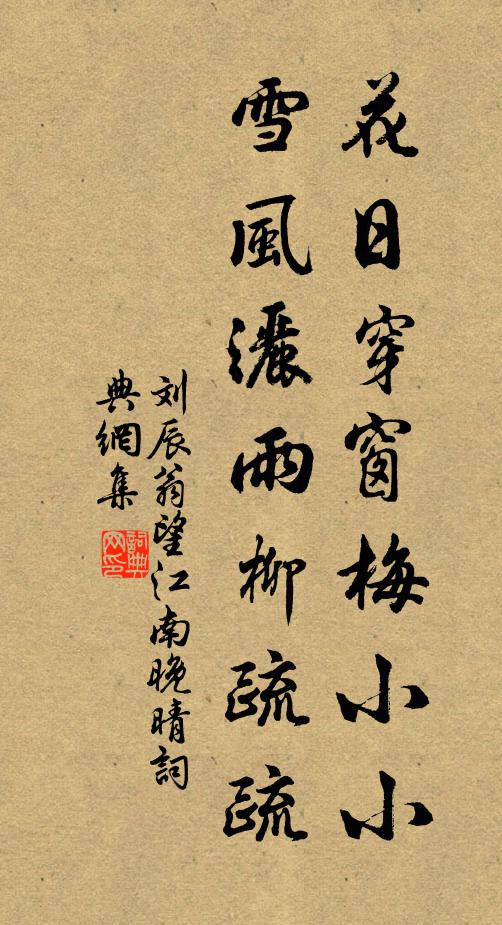 花日穿窗梅小小
雪風灑雨柳疏疏
刘辰翁望江南晚晴詞
典網集
詞典
网印